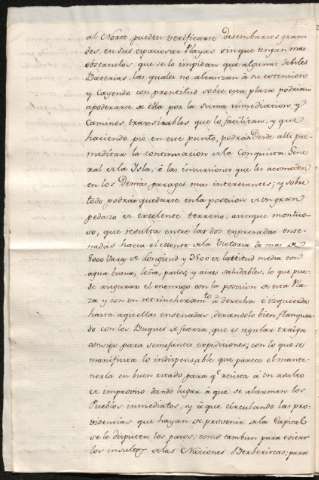 al Norte pueden verificarse desembarcos gran-
des, en sus espaciosas Playas sin que tengan mas
obstaculos que se lo impidan que algunas debiles
Baterias, las quales no alcanzan à su extension
y cayendo con prontitud sobre esta plaza podrian
apoderarse de ella por la suma inmediacion y
Caminos transitables que lo facilitan, y que
haciendo pie en este punto, podrian desde alli pre-
meditar la continuacion de la Conquista Gene-
ral de la Isla, ò las invasiones que les acomoden
en los Demas parages mas interesantes; y sobre
todo podrian quedarse en la posesion de un gran
pedazo de excelente terreno, aunque montuo-
so, que resulta entre las dos expresadas ense-
nadas hacia el de la Victoria de mas de
8000 Varas de Longitud y 7000 de latitud media con
agua buena, leña, pastos, y aires saludables, lo que pue-
de asegurar el enemigo con la posesion de esta Pla-
za y con un retrincheram.to à derecha è izquierda
hasta aquellas ensenadas dexandolo bien flanquea-
do con los Buques de fuerza, que es regular traiga
consigo para semejantes expediciones; con lo que se
manifiesta lo indispensable que parece el mante-
nerla en buen estado para q.e resista à un asalto
de improviso dando lugar à que se alarmen los
Pueblos inmediatos, y à que circulando las pro-
videncias que hayan de provenir de la Capital
se le disputen los pasos, como tambien para evitar
los insultos de las Naciones Berberiscas, para